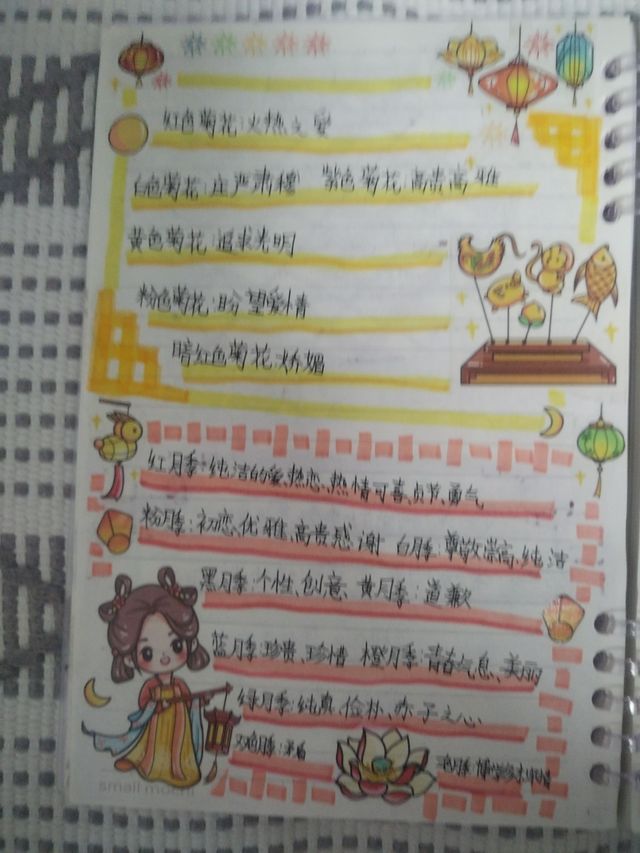 红色菊花:火热之爱
白色菊花:庄严肃穆 紫色菊花:高贵高雅
黄色菊花:追求光明
粉色菊花:盼望爱情
暗红色菊花:娇媚
红月季:纯洁的爱、热恋、热情可喜、贞节、勇气
粉月季:初恋、优雅、高贵感谢 白月季:尊敬崇高、纯洁
黑月季:个性、创意 黄月季:道歉
蓝月季:珍贵、珍惜 橙月季:青春气息、美丽
绿月季:纯真、俭朴、赤子之心
双色月季:矛盾
三色月季:博学多才
small mochi